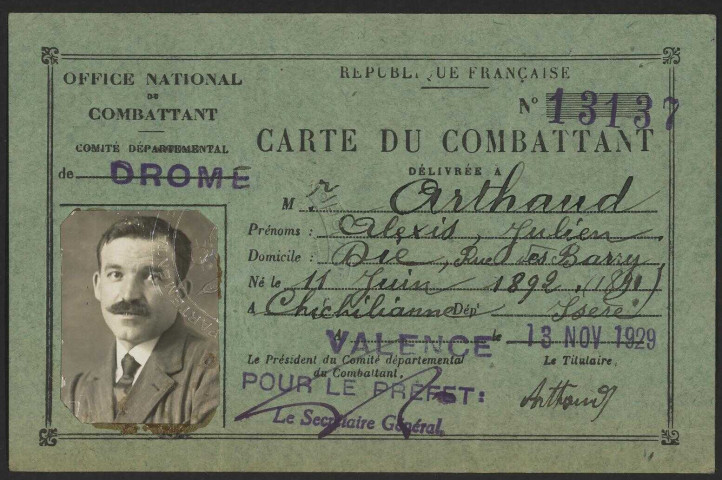 OFFICE NATIONAL
DU
COMBATTANT
COMITÉ DÉPARTEMENTAL
de DROME
RÉPUBLIQUE FRANÇAISE
N° 13137
CARTE DU COMBATTANT
DÉLIVRÉE A
M r Arthaud
Prénoms : Alexis, Julien
Domicile : Die, Rue des Barry
Né le 11 Juin 1892
à Chichilianne Dép t Isère
A VALENCE le 13 NOV 1929
Le Président du Comité départemental
du Combattant,
Le Titulaire,
POUR LE PRÉFET:
Le Secrétaire Général,
Arthaud